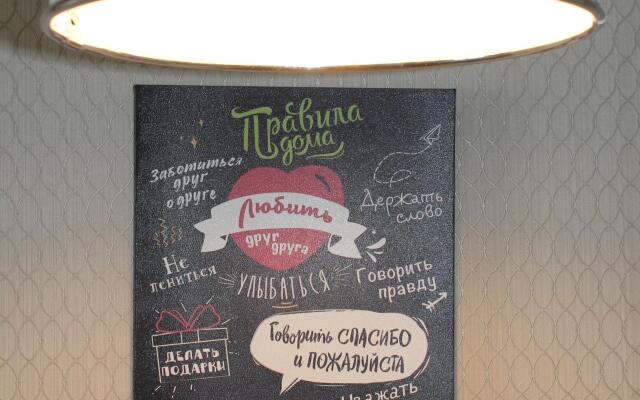 Правила
дома
Заботиться
друг
о друге
Держать
слово
Любить
друг
друга
Не
лениться
УЛЫБАТЬСЯ
Говорить
правду
ДЕЛАТЬ
ПОДАРКИ
Говорить СПАСИБО
и ПОЖАЛУЙСТА
Уважать